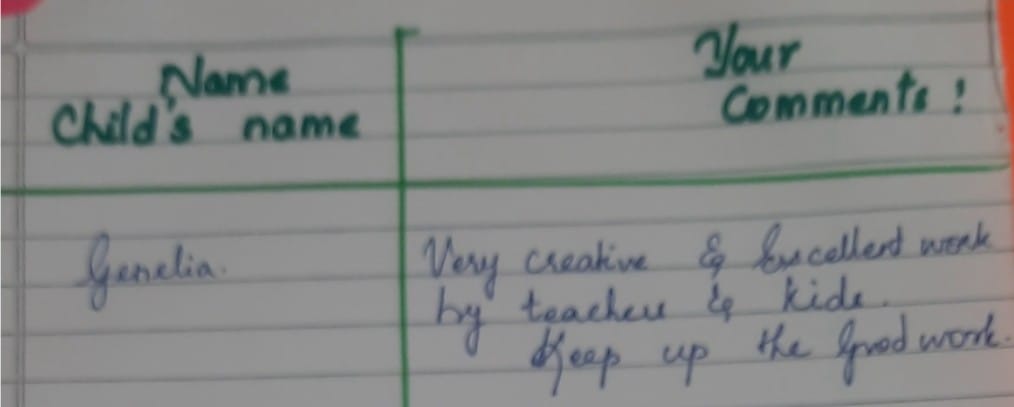 Name
Child's name
Your
Comments !
Genelia.
Very creative & Excellent work
by teachers & kids.
Keep up the Good work.